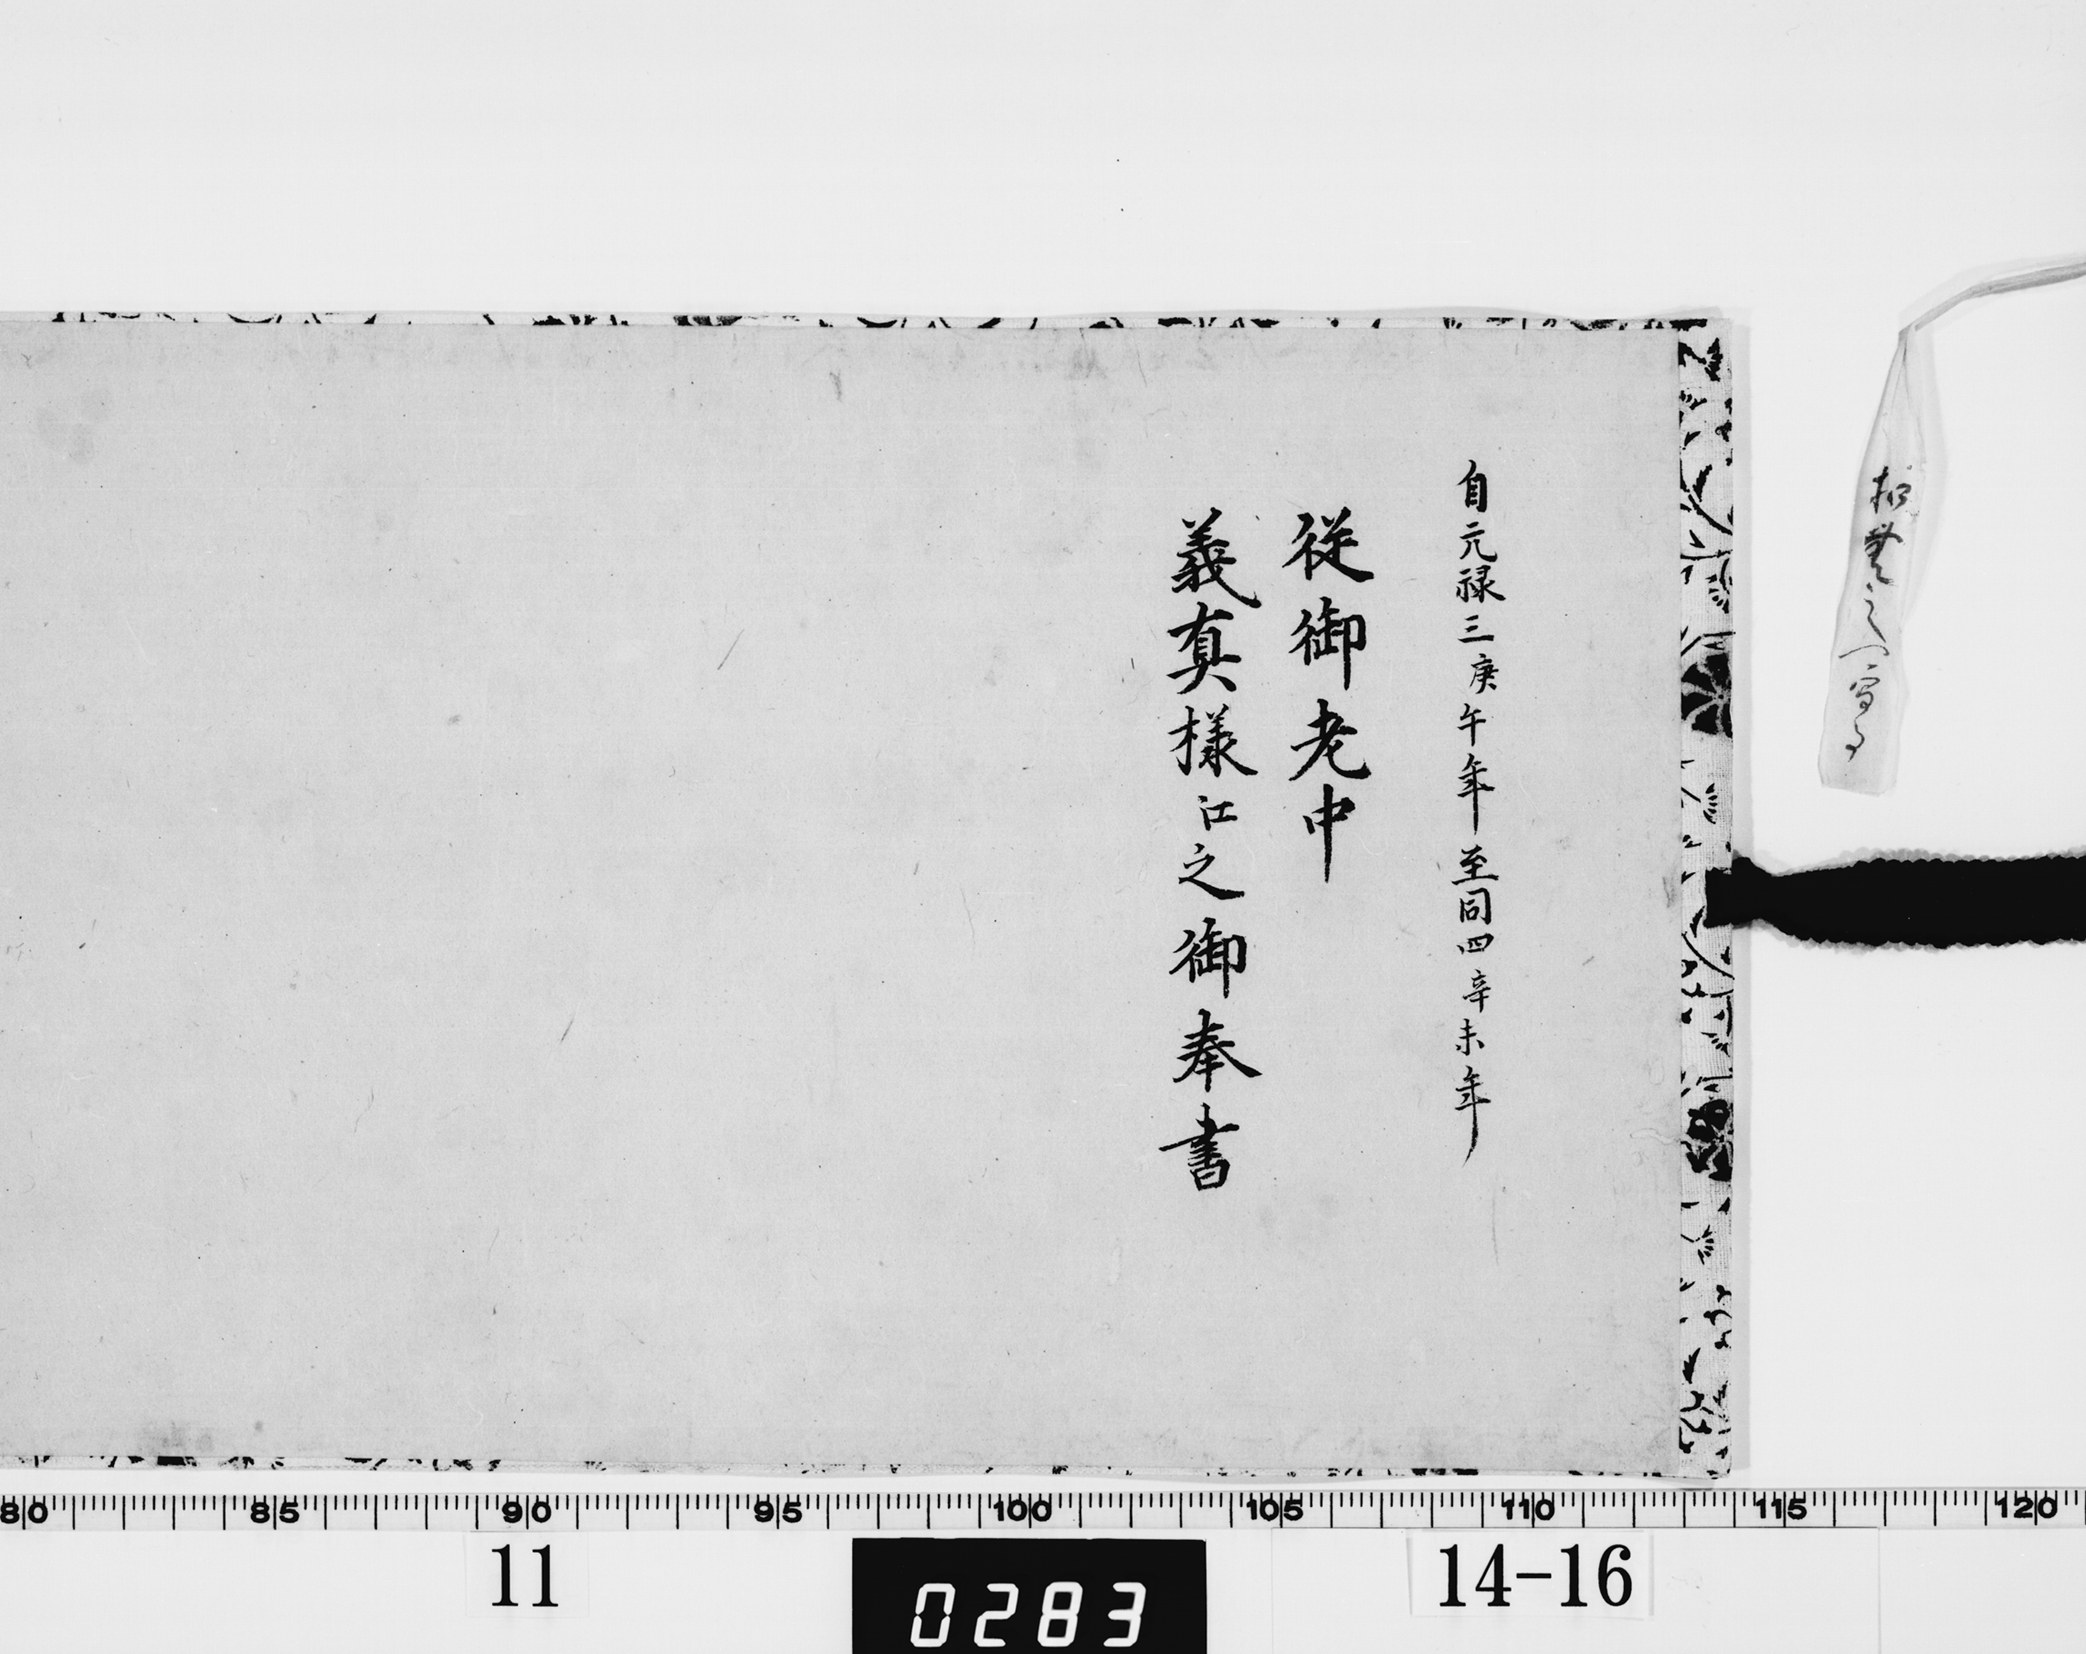 自元禄三庚午年至同四辛未年
従御老中
義真様江之御奉書
80 85 90 95 100 105 110 115 120
11
0283
14-16